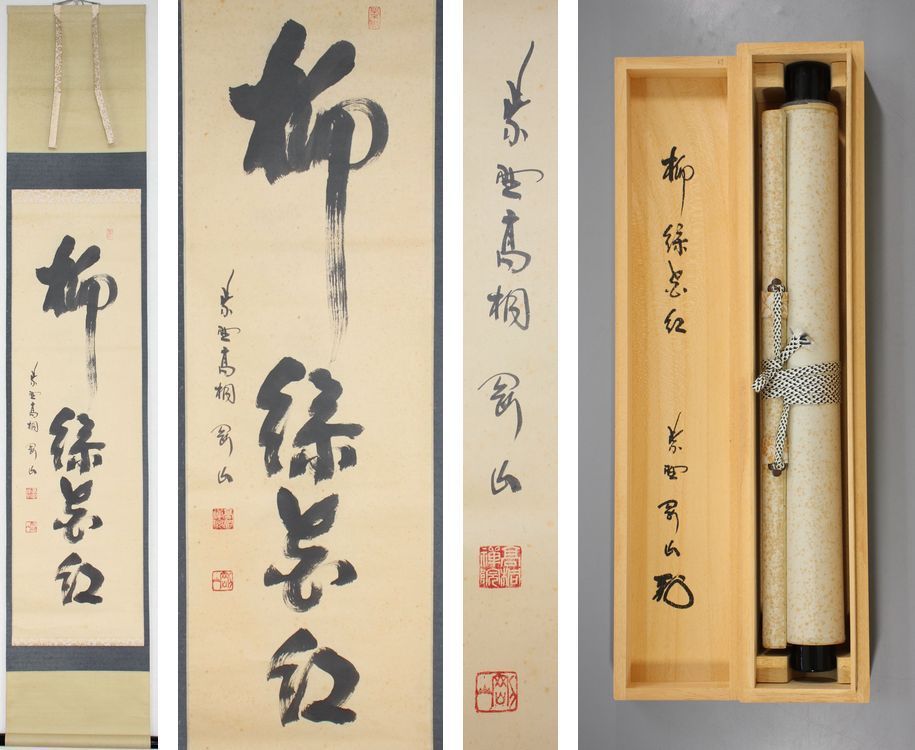 柳緑花紅
紫野高桐 剛山
柳緑花紅
紫野高桐 剛山
紫野高桐 剛山
高桐禅院
剛山
柳緑花紅
紫野 剛山